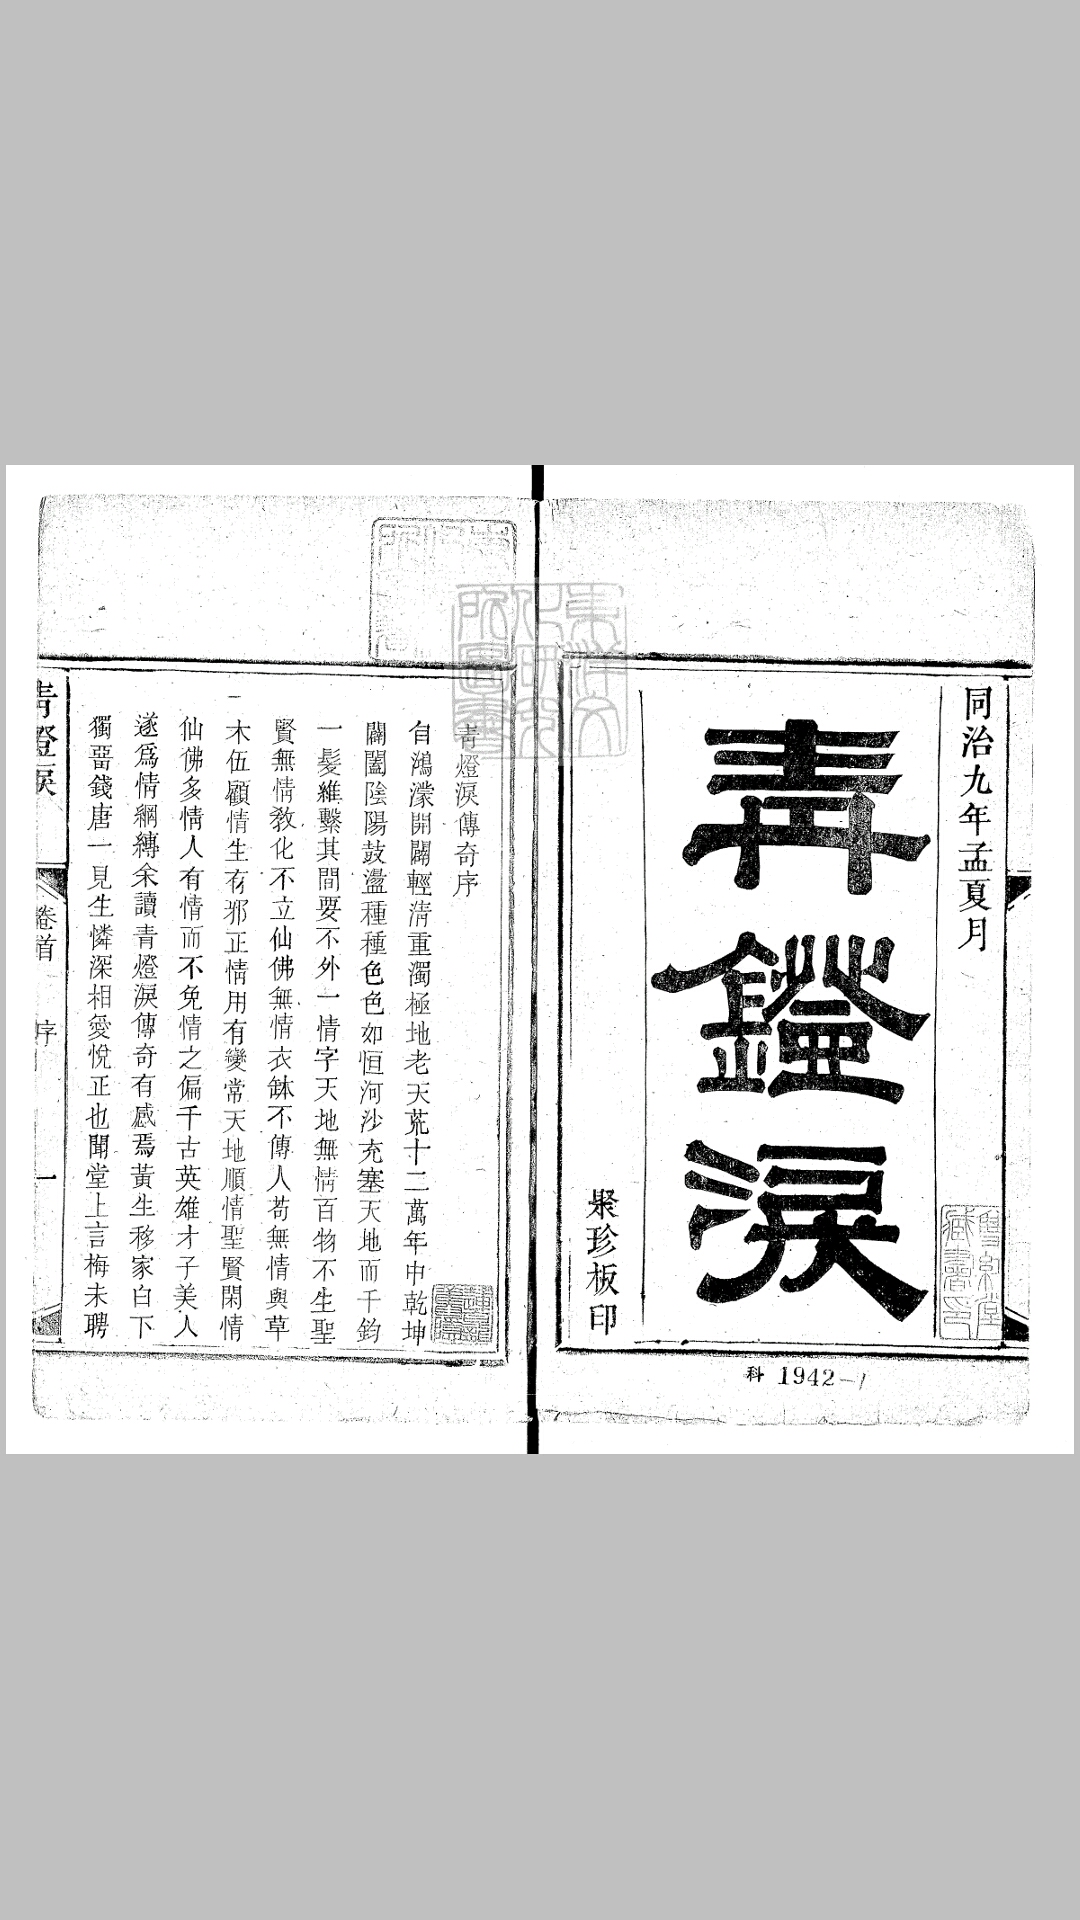 同治九年孟夏月
青鐙淚
聚珍板印
科 1942-1
青燈淚傳奇序
自鴻濛開闢輕淸重濁極地老天荒十二萬年中乾坤
闢闔陰陽鼓盪種種色色如恒河沙充塞天地而千鈞
一髮維繫其間要不外一情字天地無情百物不生聖
賢無情敎化不立仙佛無情衣缽不傳人苟無情與草
木伍顧情生有邪正情用有變常天地順情聖賢閑情
仙佛多情人有情而不免情之偏千古英雄才子美人
遂爲情綱縛余讀青燈淚傳奇有感焉黃生移家白下
獨畱錢唐一見生憐深相愛悅正也聞堂上言梅未聘
青燈淚
卷首
序
一